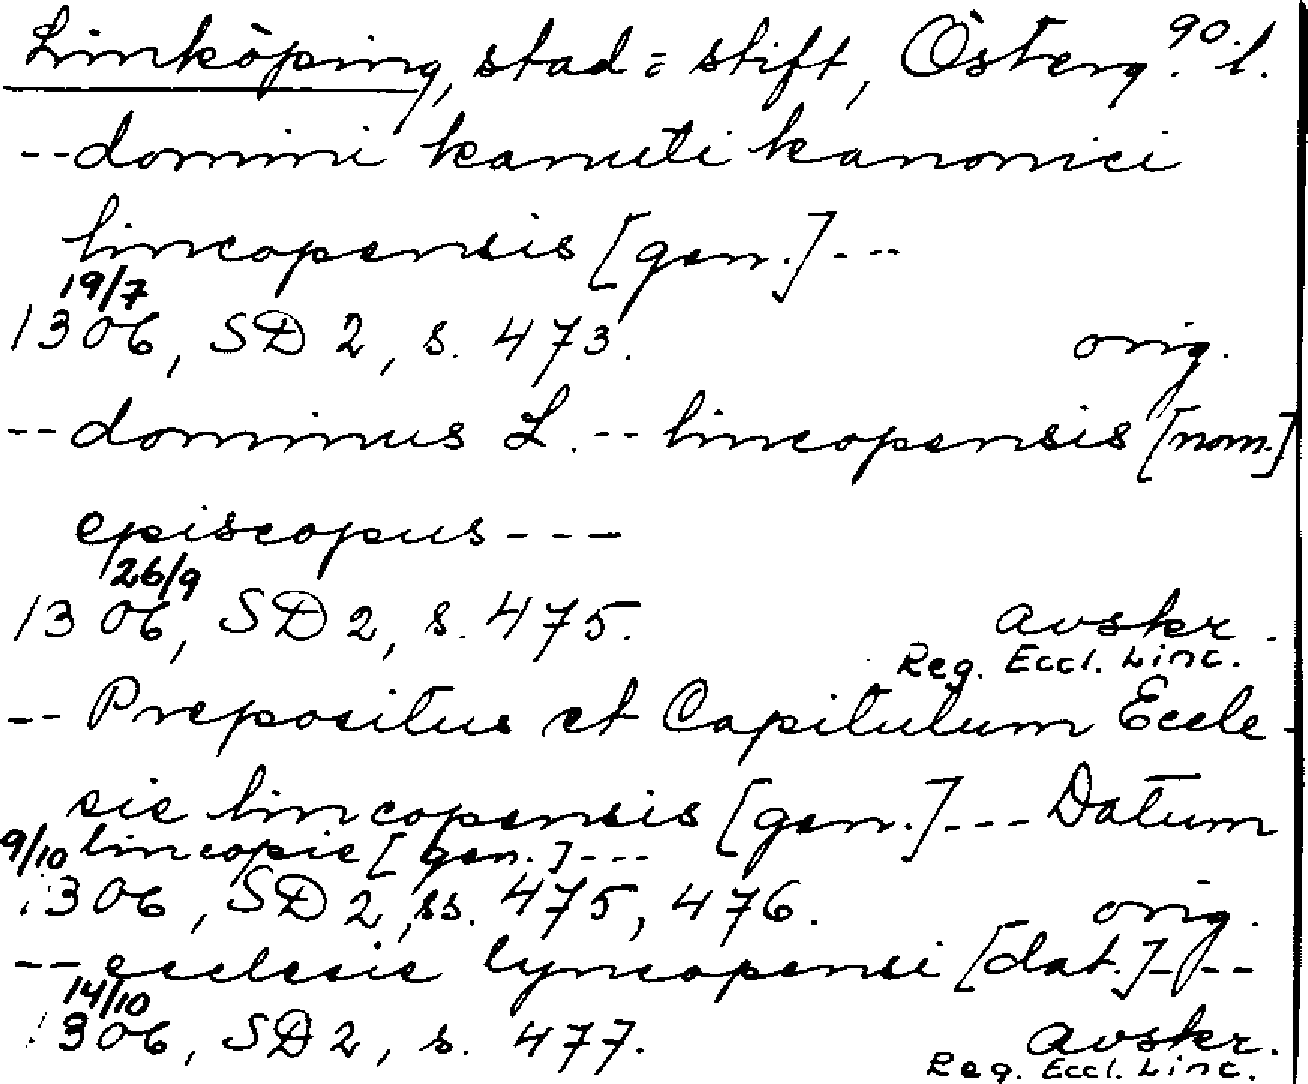 Linköping, stad = stift, Österg. 90. l.
-- domini kanuti kanonici
lincopensis [gen.] ---
19/7
1306, SD 2, s. 473. orig.
-- dominus L. -- lincopensis [nom.]
episcopus ---
26/9
1306, SD 2, s. 475. avskr.
Reg. Eccl. Linc.
-- Prepositus et Capitulum Eccle-
sie lincopensis [gen.] --- Datum
9/10 lincopie [gen.] ---
1306, SD 2, ss. 475, 476. orig.
-- ecclesie lyncopensi [dat.] ---
14/10
1306, SD 2, s. 477. avskr.
Reg. Eccl. Linc.